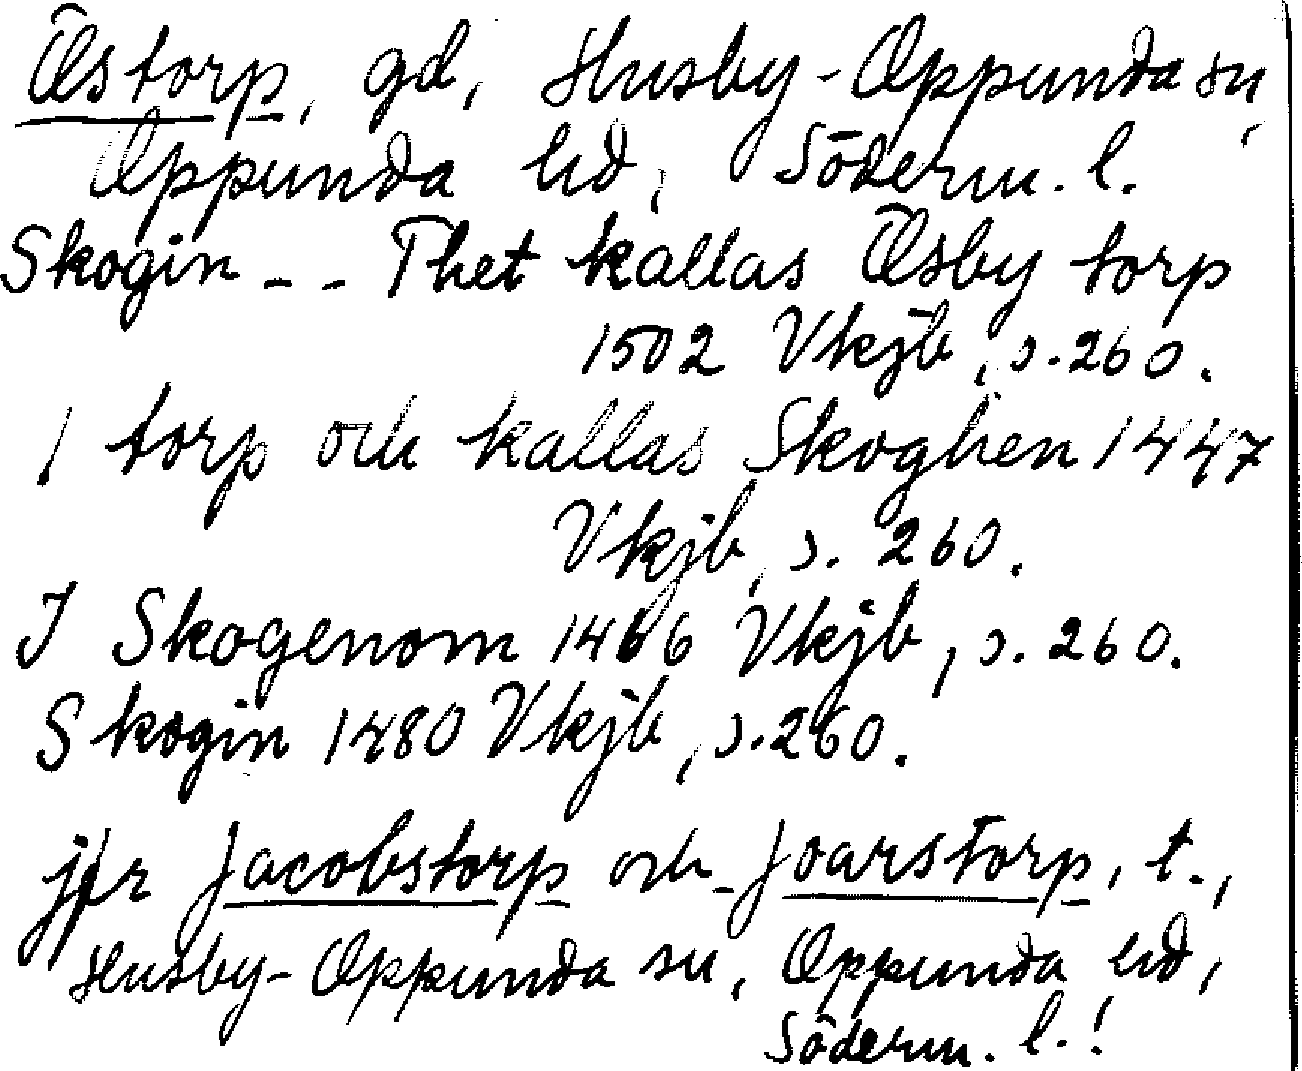 Östorp, gd, Husby-Oppunda sn,
Oppunda hd, Söderm. l.
Skogin -- Thet kallas Ösby torp
1502 Vkjb, s. 260.
1 torp och kallas Skoghen 1447
Vkjb, s. 260.
J Skogenom 1466 Vkjb, s. 260.
Skogin 1480 Vkjb, s. 260.
jfr Jacobstorp och Joarstorp, t.,
Husby-Oppunda sn, Oppunda hd,
Söderm. l.!